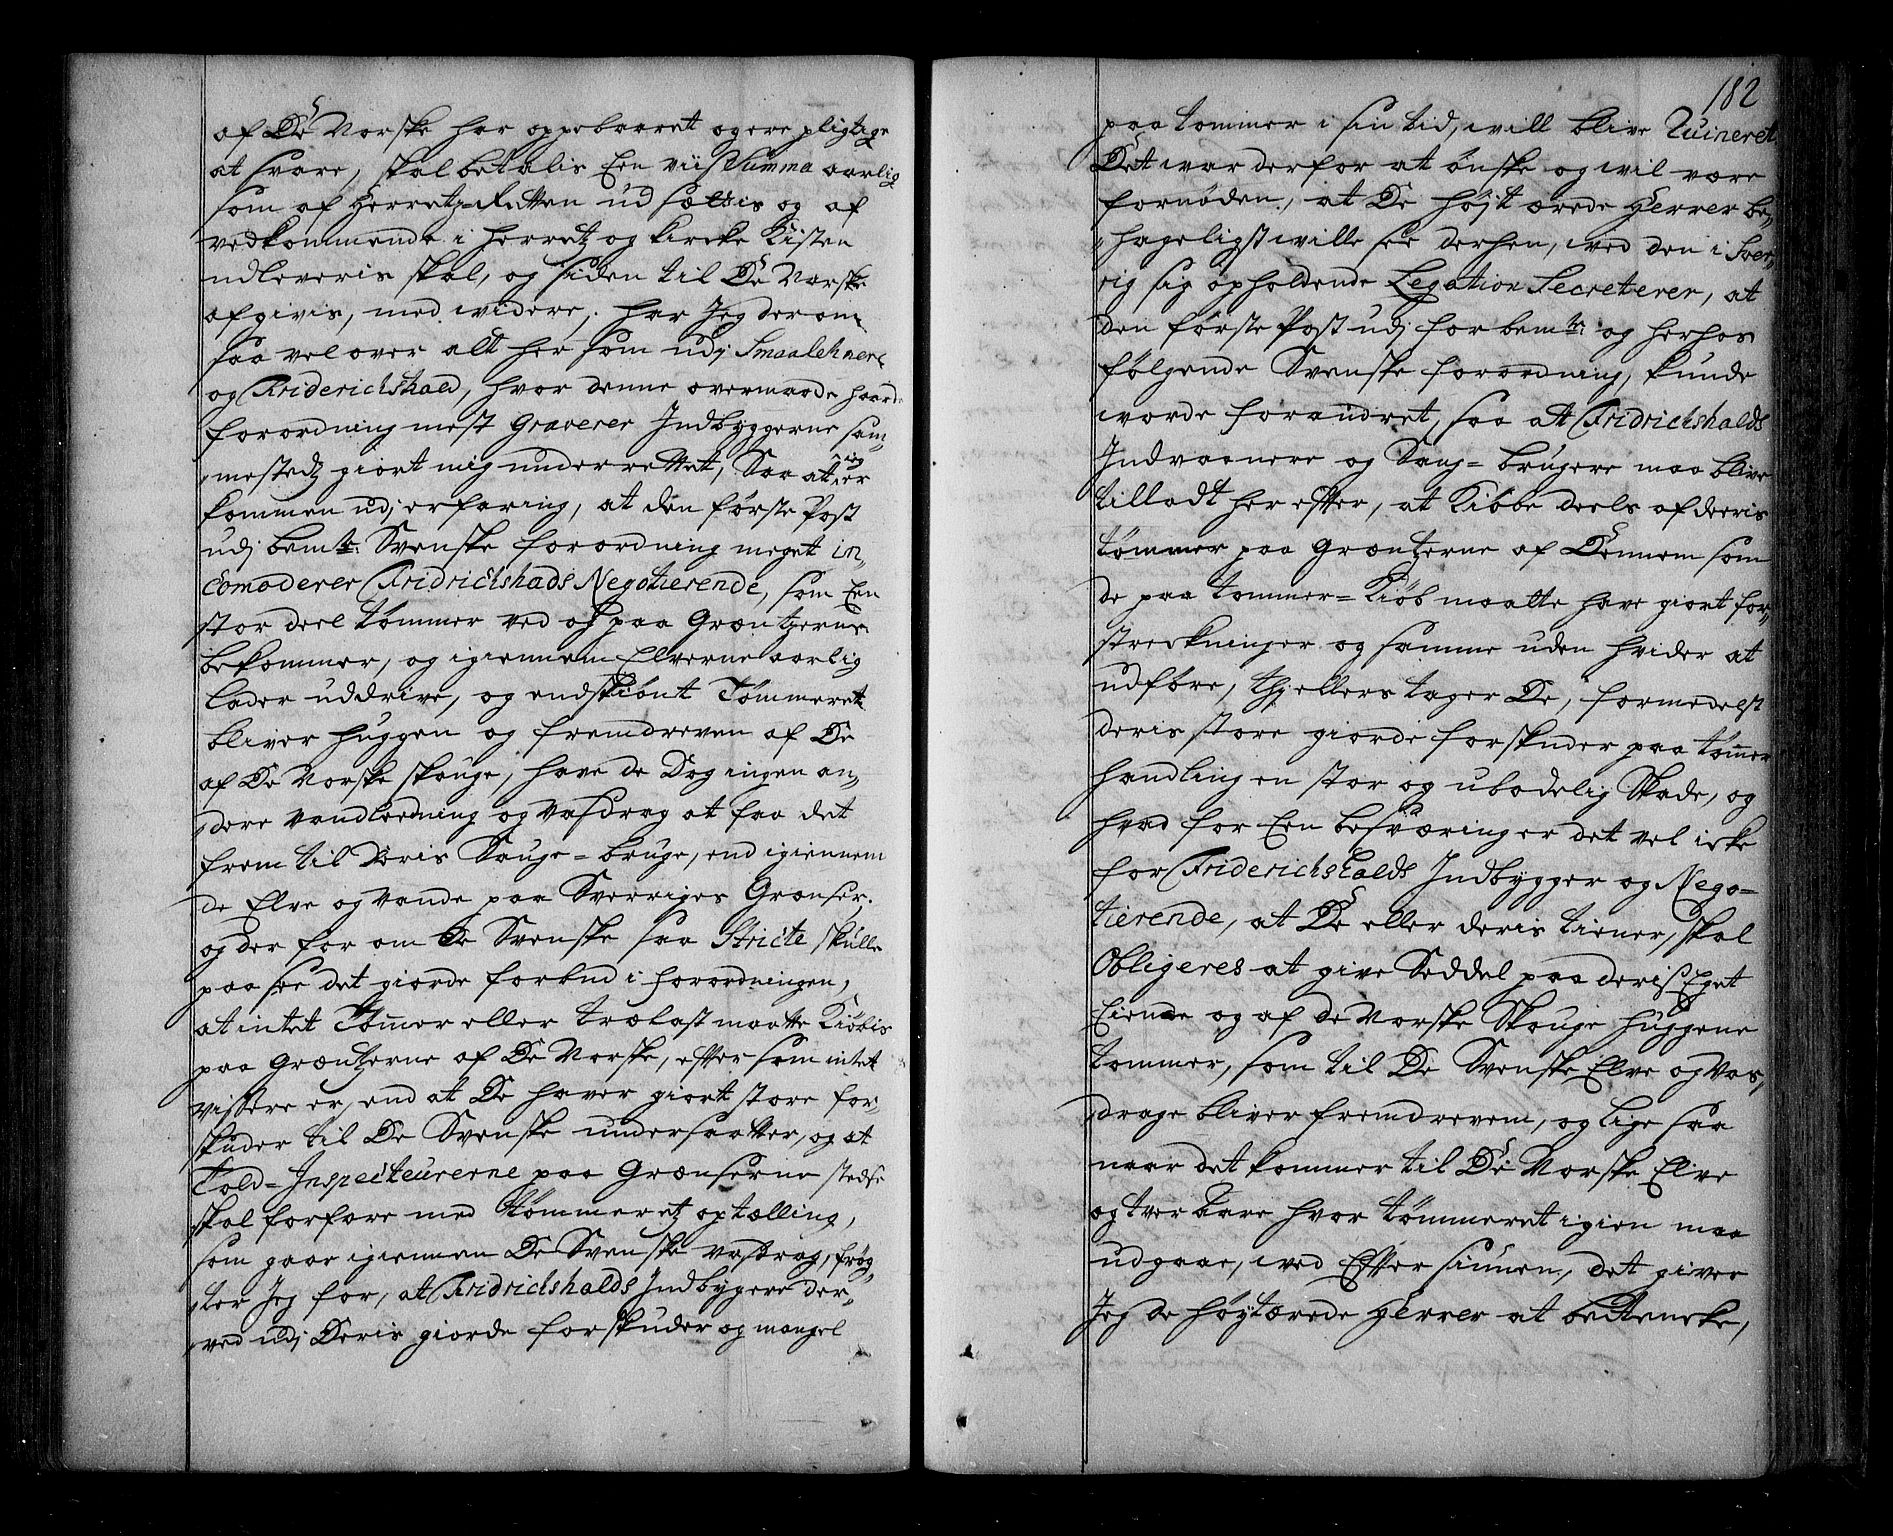 af De Norske har oppebaaret og ere pligtige
at svare, skal betalis Een viis Summa aarlig
som af Herretz-Retten ud sættis og af
vedkommende i herretz og kircke Kisten
udleveris skal, og siden til De Norske
afgivis, med widere, har Jeg der om
saa vel over alt her som udj Smaalehnene
og Friderichshald, hvor denne overmaade haarde
forordning mest Graverer Indbyggerne sam„
„mestedz giort mig underrettet, Saa at ieg er
kommen udj erfaring, at den første Post
udj bemte Svenske forordning meget in„
comoderer Fridrichshads Negotierende, som Een
stor deel tømmer ved og paa Græntzerne
bekommer, og igiennem Elverne aarlig
lader uddrive, og endskiønt Tømmeret
bliver huggen og fremdreven af De
af De Norske skouge, have de Dog ingen an„
„dere vandledning og vasdrag at faa det
frem til Deris Sauge-bruge, end igiennem
de Elve og vande paa Sverriges Grænser.
og der for om De Svenske saa Stricte skulle
paa see det giorde forbud i forordningen,
at intet Tømer eller trælast maatte Kiøbis
paa Græntzerne af De Norske, efter som intet
vissere er, end at De haver giort store for„
skuder til De Svenske undersaatter, og at
Told-Inspecteurerne paa Grænserne stedse
skal forfare med tømmeretz optælling,
som gaar igiennem De Svenske vasdrag, frøg„
„ter Jeg for, at Fridrichshalds Indbygere der„
„ved udj Deris giorde forskuder og mangel
182
paa tømmer i sin tid, will blive Ruineret
Det war derfor at ønske og wil være
fornøden, at De høyt ærede Herrer be„
„hageligst wille see derhen, wed den i Sver„
rig sig opholdende Legation Secreterer, at
den første Post udj forbemte og herhos
følgende Svenske forordning, kunde
worde forandret, saa at Fridrichshalds
Indvaanere og Saug-brugere maa blive
tilladt her efter, at Kiöbe deels af deeris
tømmer paa Græntzerne af Dennem som
de paa tømmer-Kiöb maatte have giort for„
streckninger og samme uden hinder at
udføre, thj ellers tager De, formedelst
deris store giorde forskuder paa tømer
handling en stor og ubodelig Skade, og
hvad for Een besværing er det vel icke
for Friderichshalds Indbygger og Nego-
tierende, at De eller deris tiener, skal
Obligeres at give Seddel paa deris Eget
Eiende og af de Norske Skouge huggene
tømmer, som til De Svenske Elve og Vas„
„drage bliver fremdreven, og lige saa
naar det kommer til De Norske Elve
og tver aare hvor tømmeret igien maa
udgaae, wed Efter siunen, det giver
Jeg de høytærede Herrer at betencke,